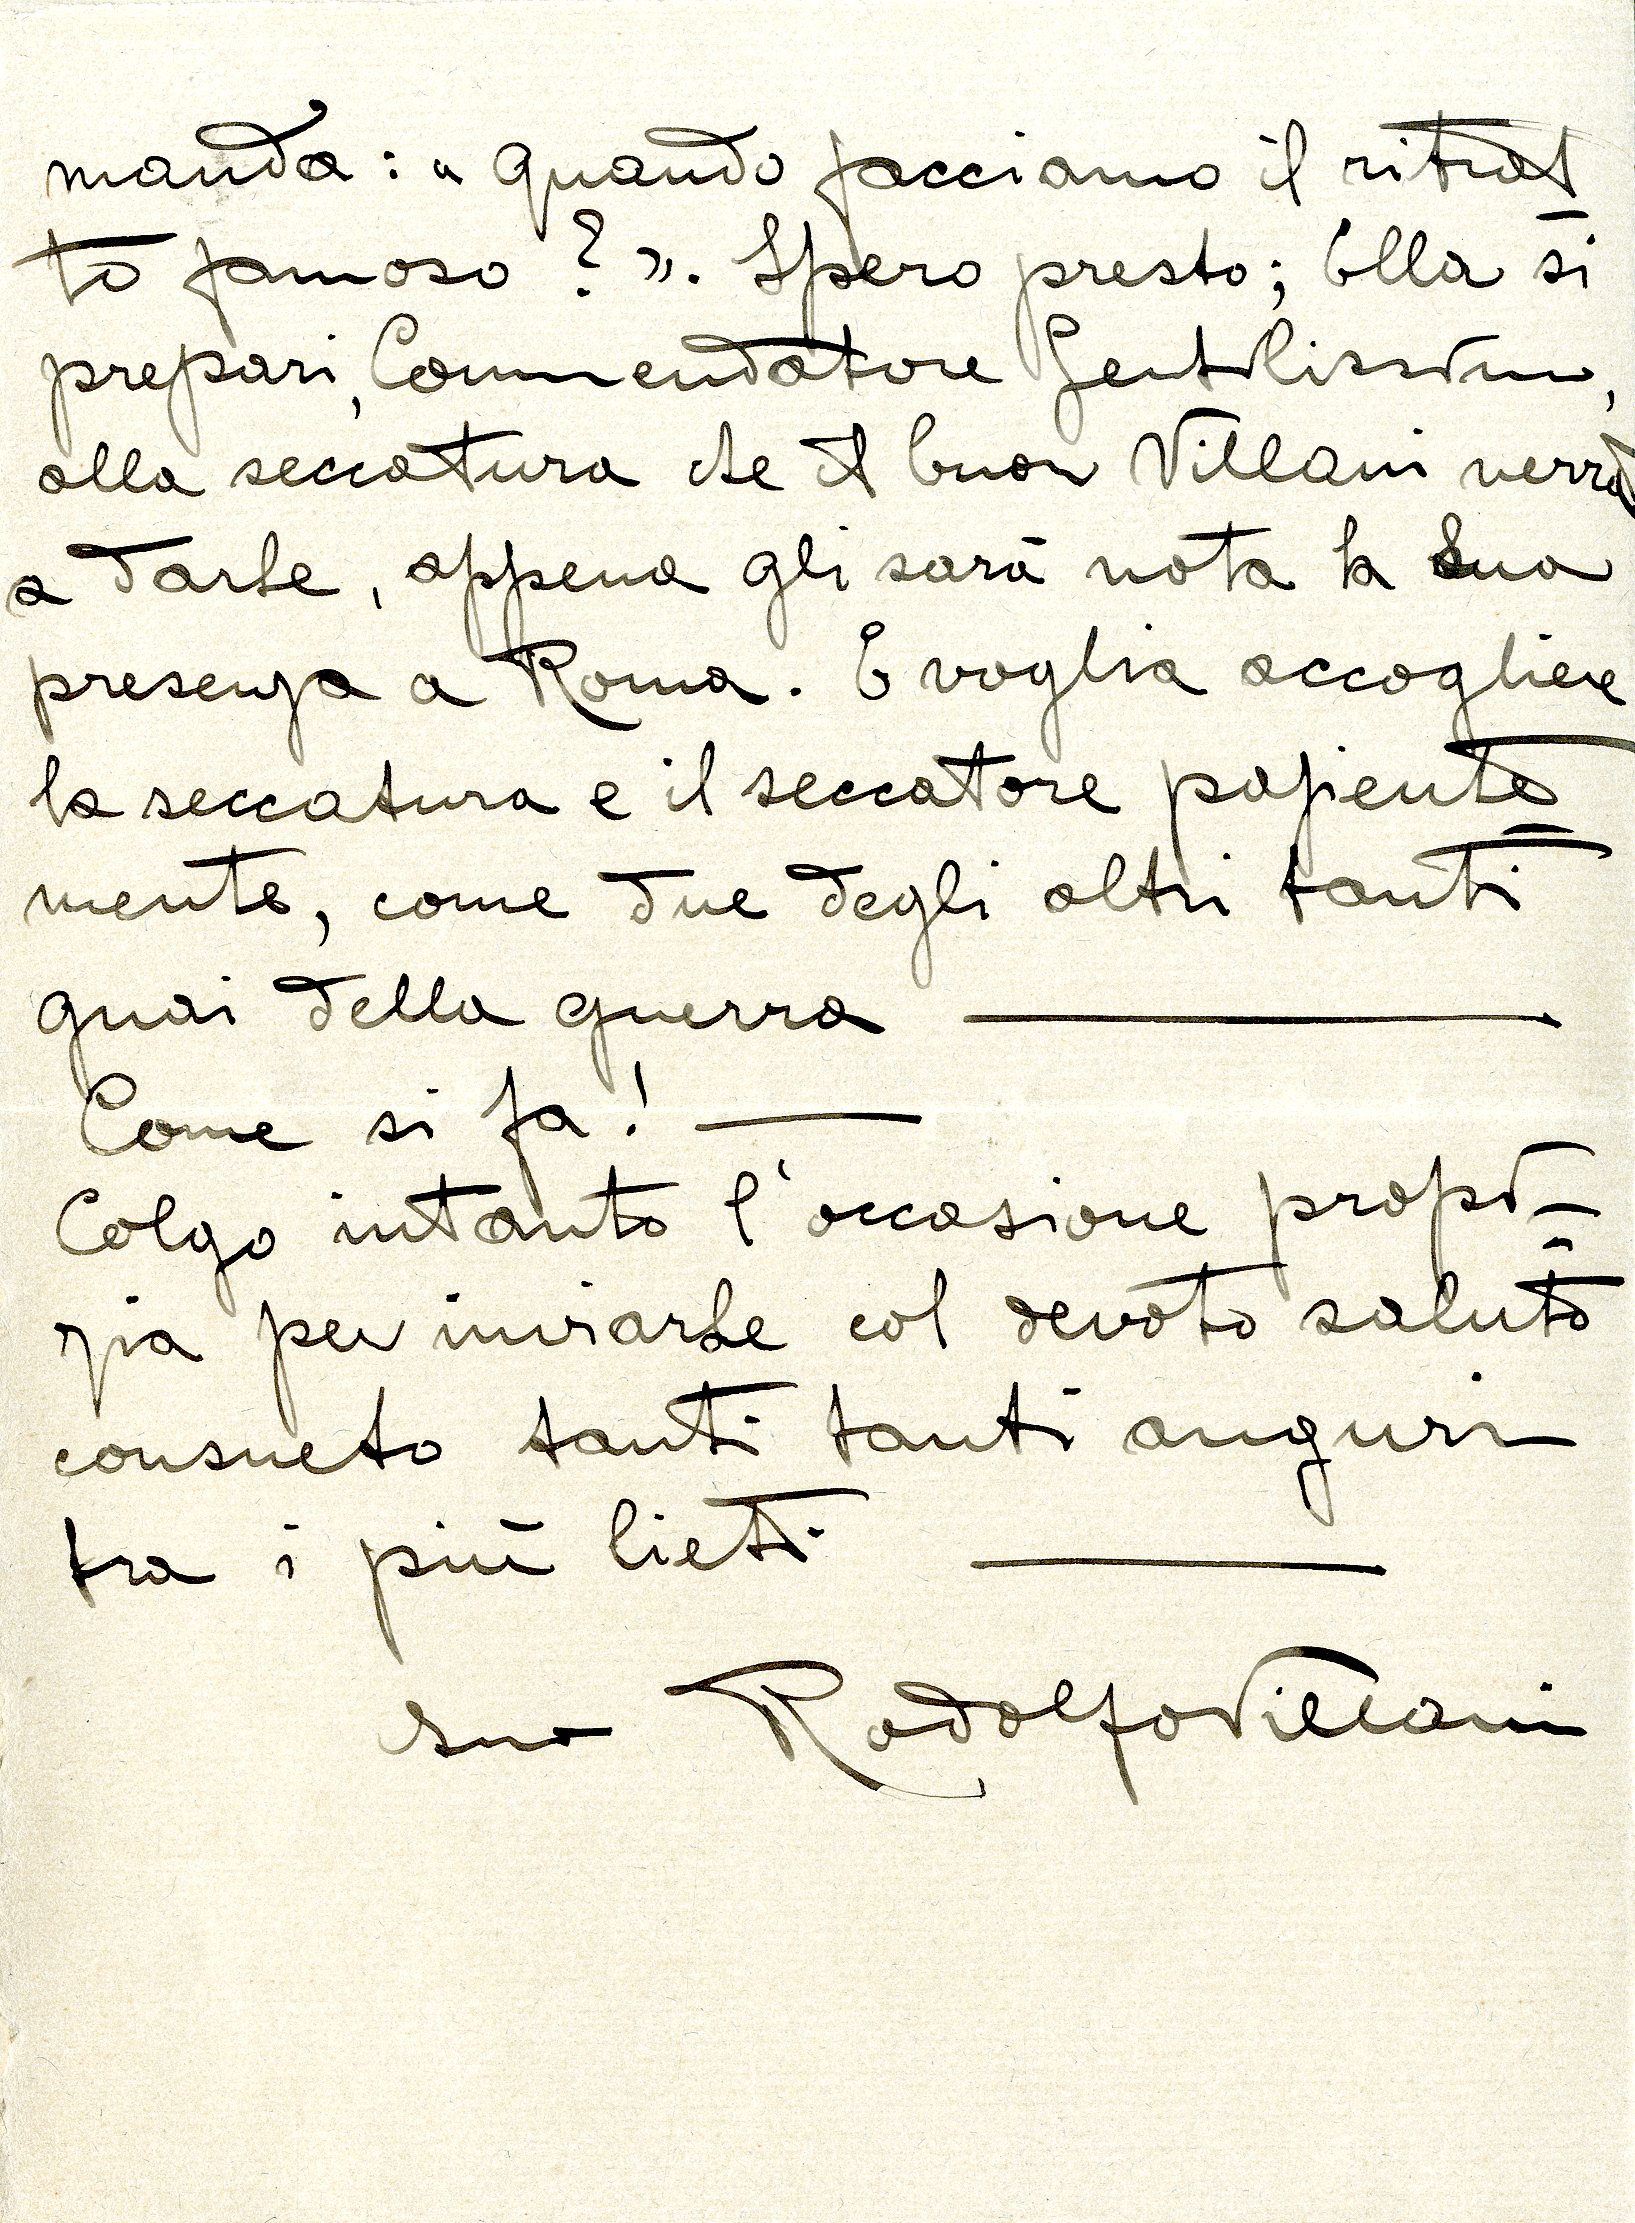 manda: « quando facciamo il ritrat
to famoso? ». Spero presto; Ella si
prepari, Commendatore Gentilissimo,
alla seccatura che il buon Villani verrà
a darle, appena gli sarà nota la Sua
presenza a Roma. E voglia accogliere
la seccatura e il seccatore paziente=
mente, come due degli altri tanti
guai della guerra —
Come si fa! —
Colgo intanto l'occasione propi=
zia per inviarle col devoto saluto
consueto tanti tanti auguri
tra i più lieti —
suo Rodolfo Villani